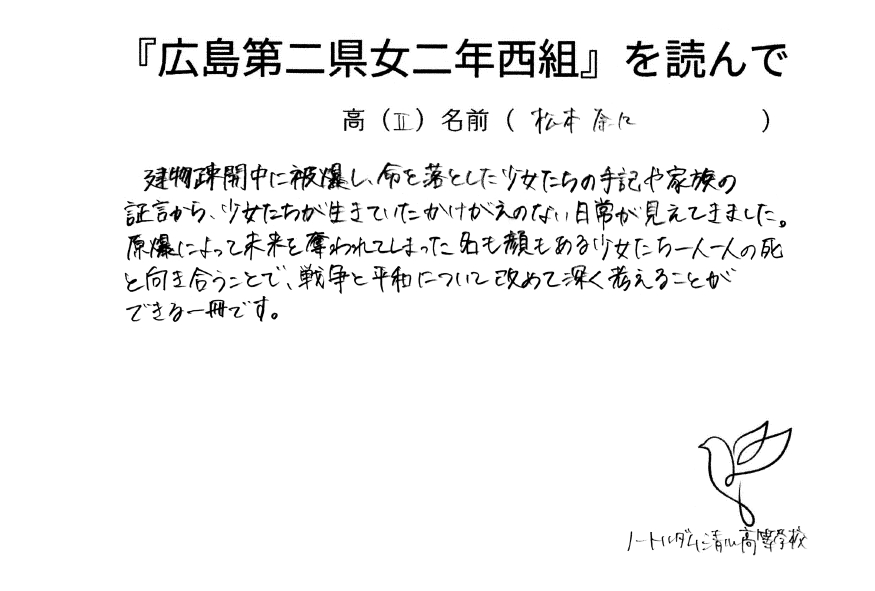 『広島第二県女二年西組』を読んで
高（Ⅱ）名前（ 松本 奈 ）
建物疎開中に被爆し、命を落とした少女たちの手記や家族の
証言から、少女たちが生きていたかけがえのない日常が見えてきました。
原爆によって未来を奪われてしまった名も顔もある少女たち一人一人の死
と向き合うことで、戦争と平和について改めて深く考えることが
できる一冊です。
ノートルダム清心高等学校